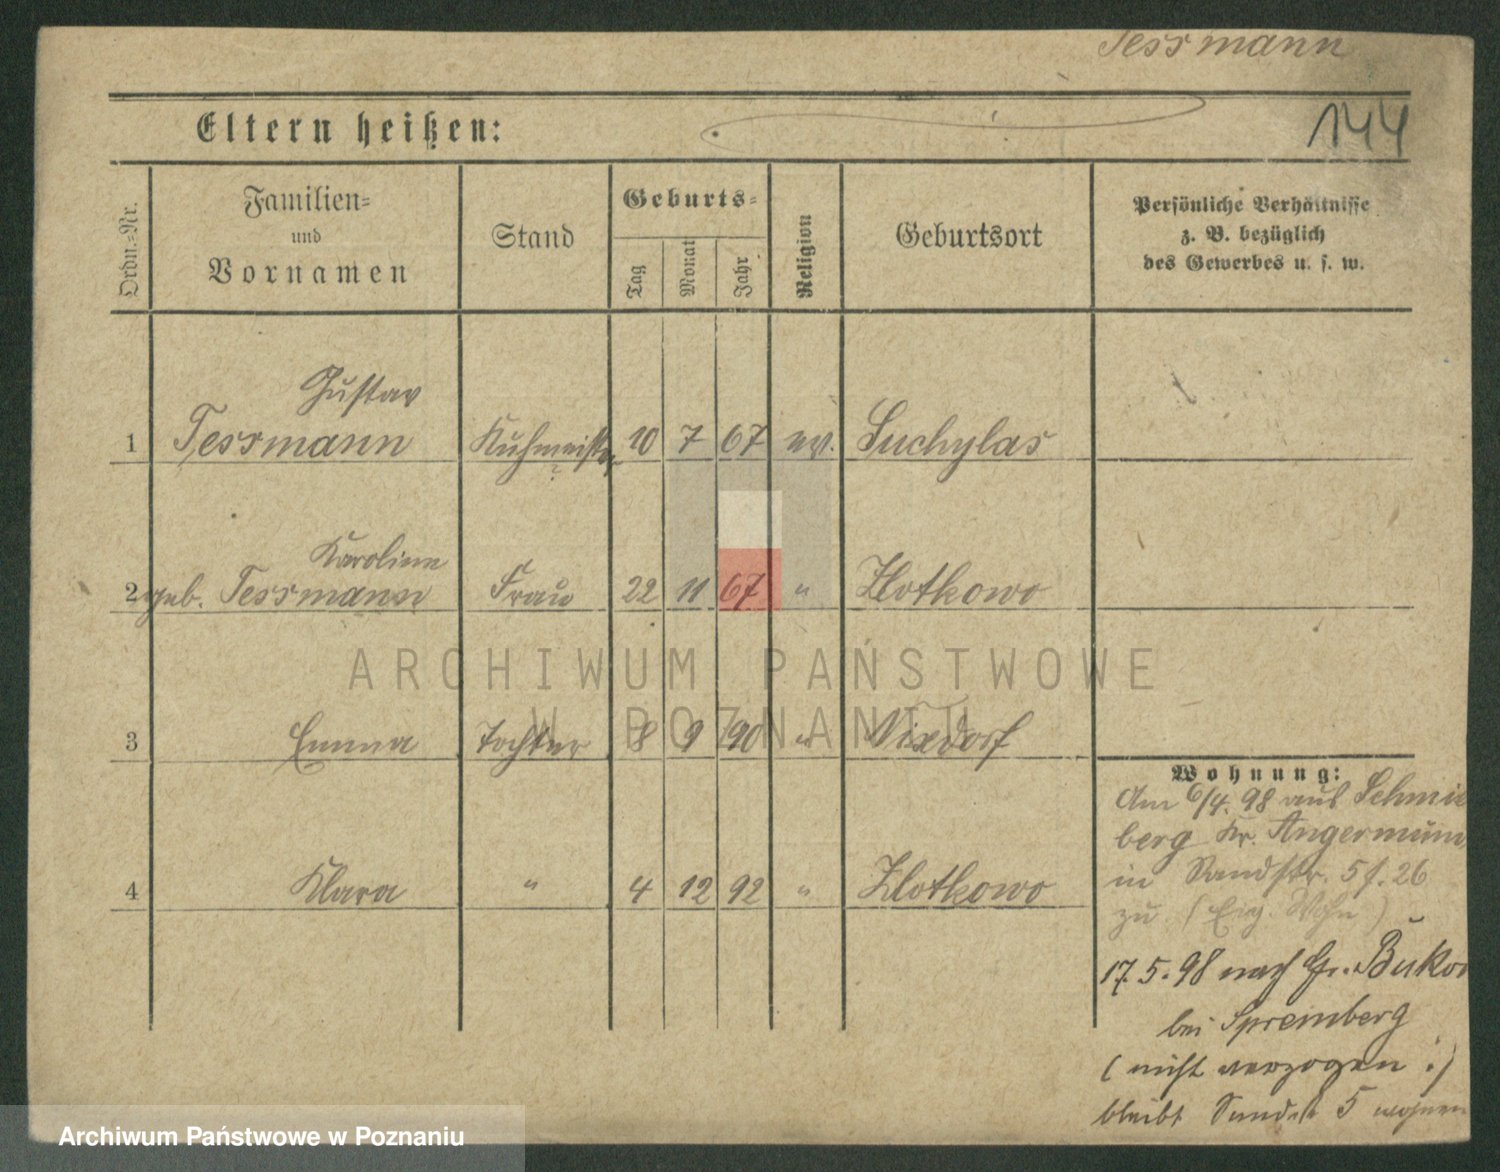 Tessmann
144
Eltern heißen:
Ordn.=Nr.
Familien=
und
Vornamen
Stand
Geburts=
Tag
Monat
Jahr
Religion
Geburtsort
Persönliche Verhältnisse
z. B. bezüglich
des Gewerbes u. s. w.
Gustav
1 Tessmann Kuhmeister 10 7 67 ev. Suchylas
Karoline
2 geb. Tessmann Frau 22 11 67 " Zlotkowo
ARCHIWUM PAŃSTWOWE
W POZNANIU
3 Emma Tochter 8 9 90 " Nixdorf
4 Klara " 4 12 92 " Zlotkowo
Wohnung:
Am 6/4. 98 aus Schmie
berg Kr. Angermün
in Sandstr. 5 f. 26
zu (Eig. Wohn)
17.5.98 nach Gr. Bukow
bei Spremberg
(nicht verzogen :)
bleibt Sandst 5 wohnen
Archiwum Państwowe w Poznaniu